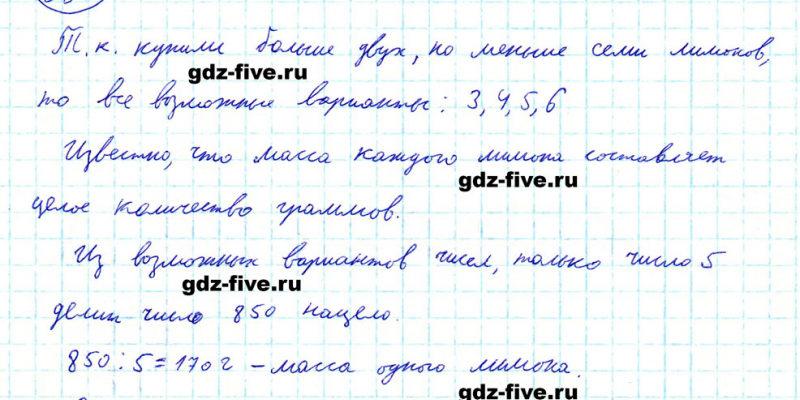 Т.к. купили больше двух, но меньше семи лимонов,
gdz-five.ru
то все возможные варианты: 3, 4, 5, 6
Известно, что масса каждого лимона составляет
gdz-five.ru
целое количество граммов.
Из возможных вариантов чисел, только число 5
gdz-five.ru
делит число 850 нацело.
850 : 5 = 170 г – масса одного лимона.
gdz-five.ru